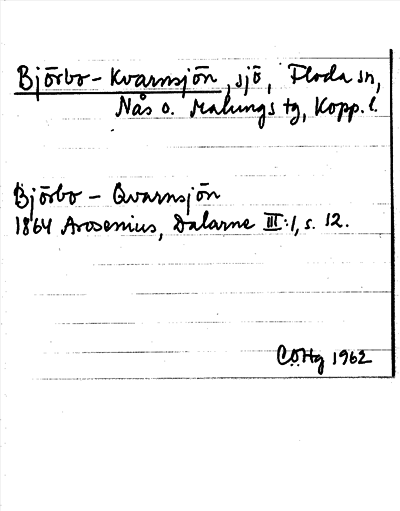 Björbo - Kvarnsjön, sjö, Floda sn,
Nås o. Malungs tg, Kopp. l.
Björbo - Qvarnsjön
1864 Arosenius, Dalarne III:1, s. 12.
COHg 1962